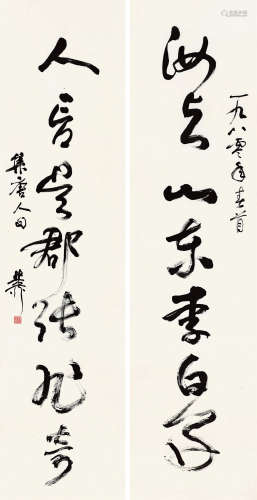 一九八零年春首
汝与山东李白好
人言吴郡张旭奇
集唐人句